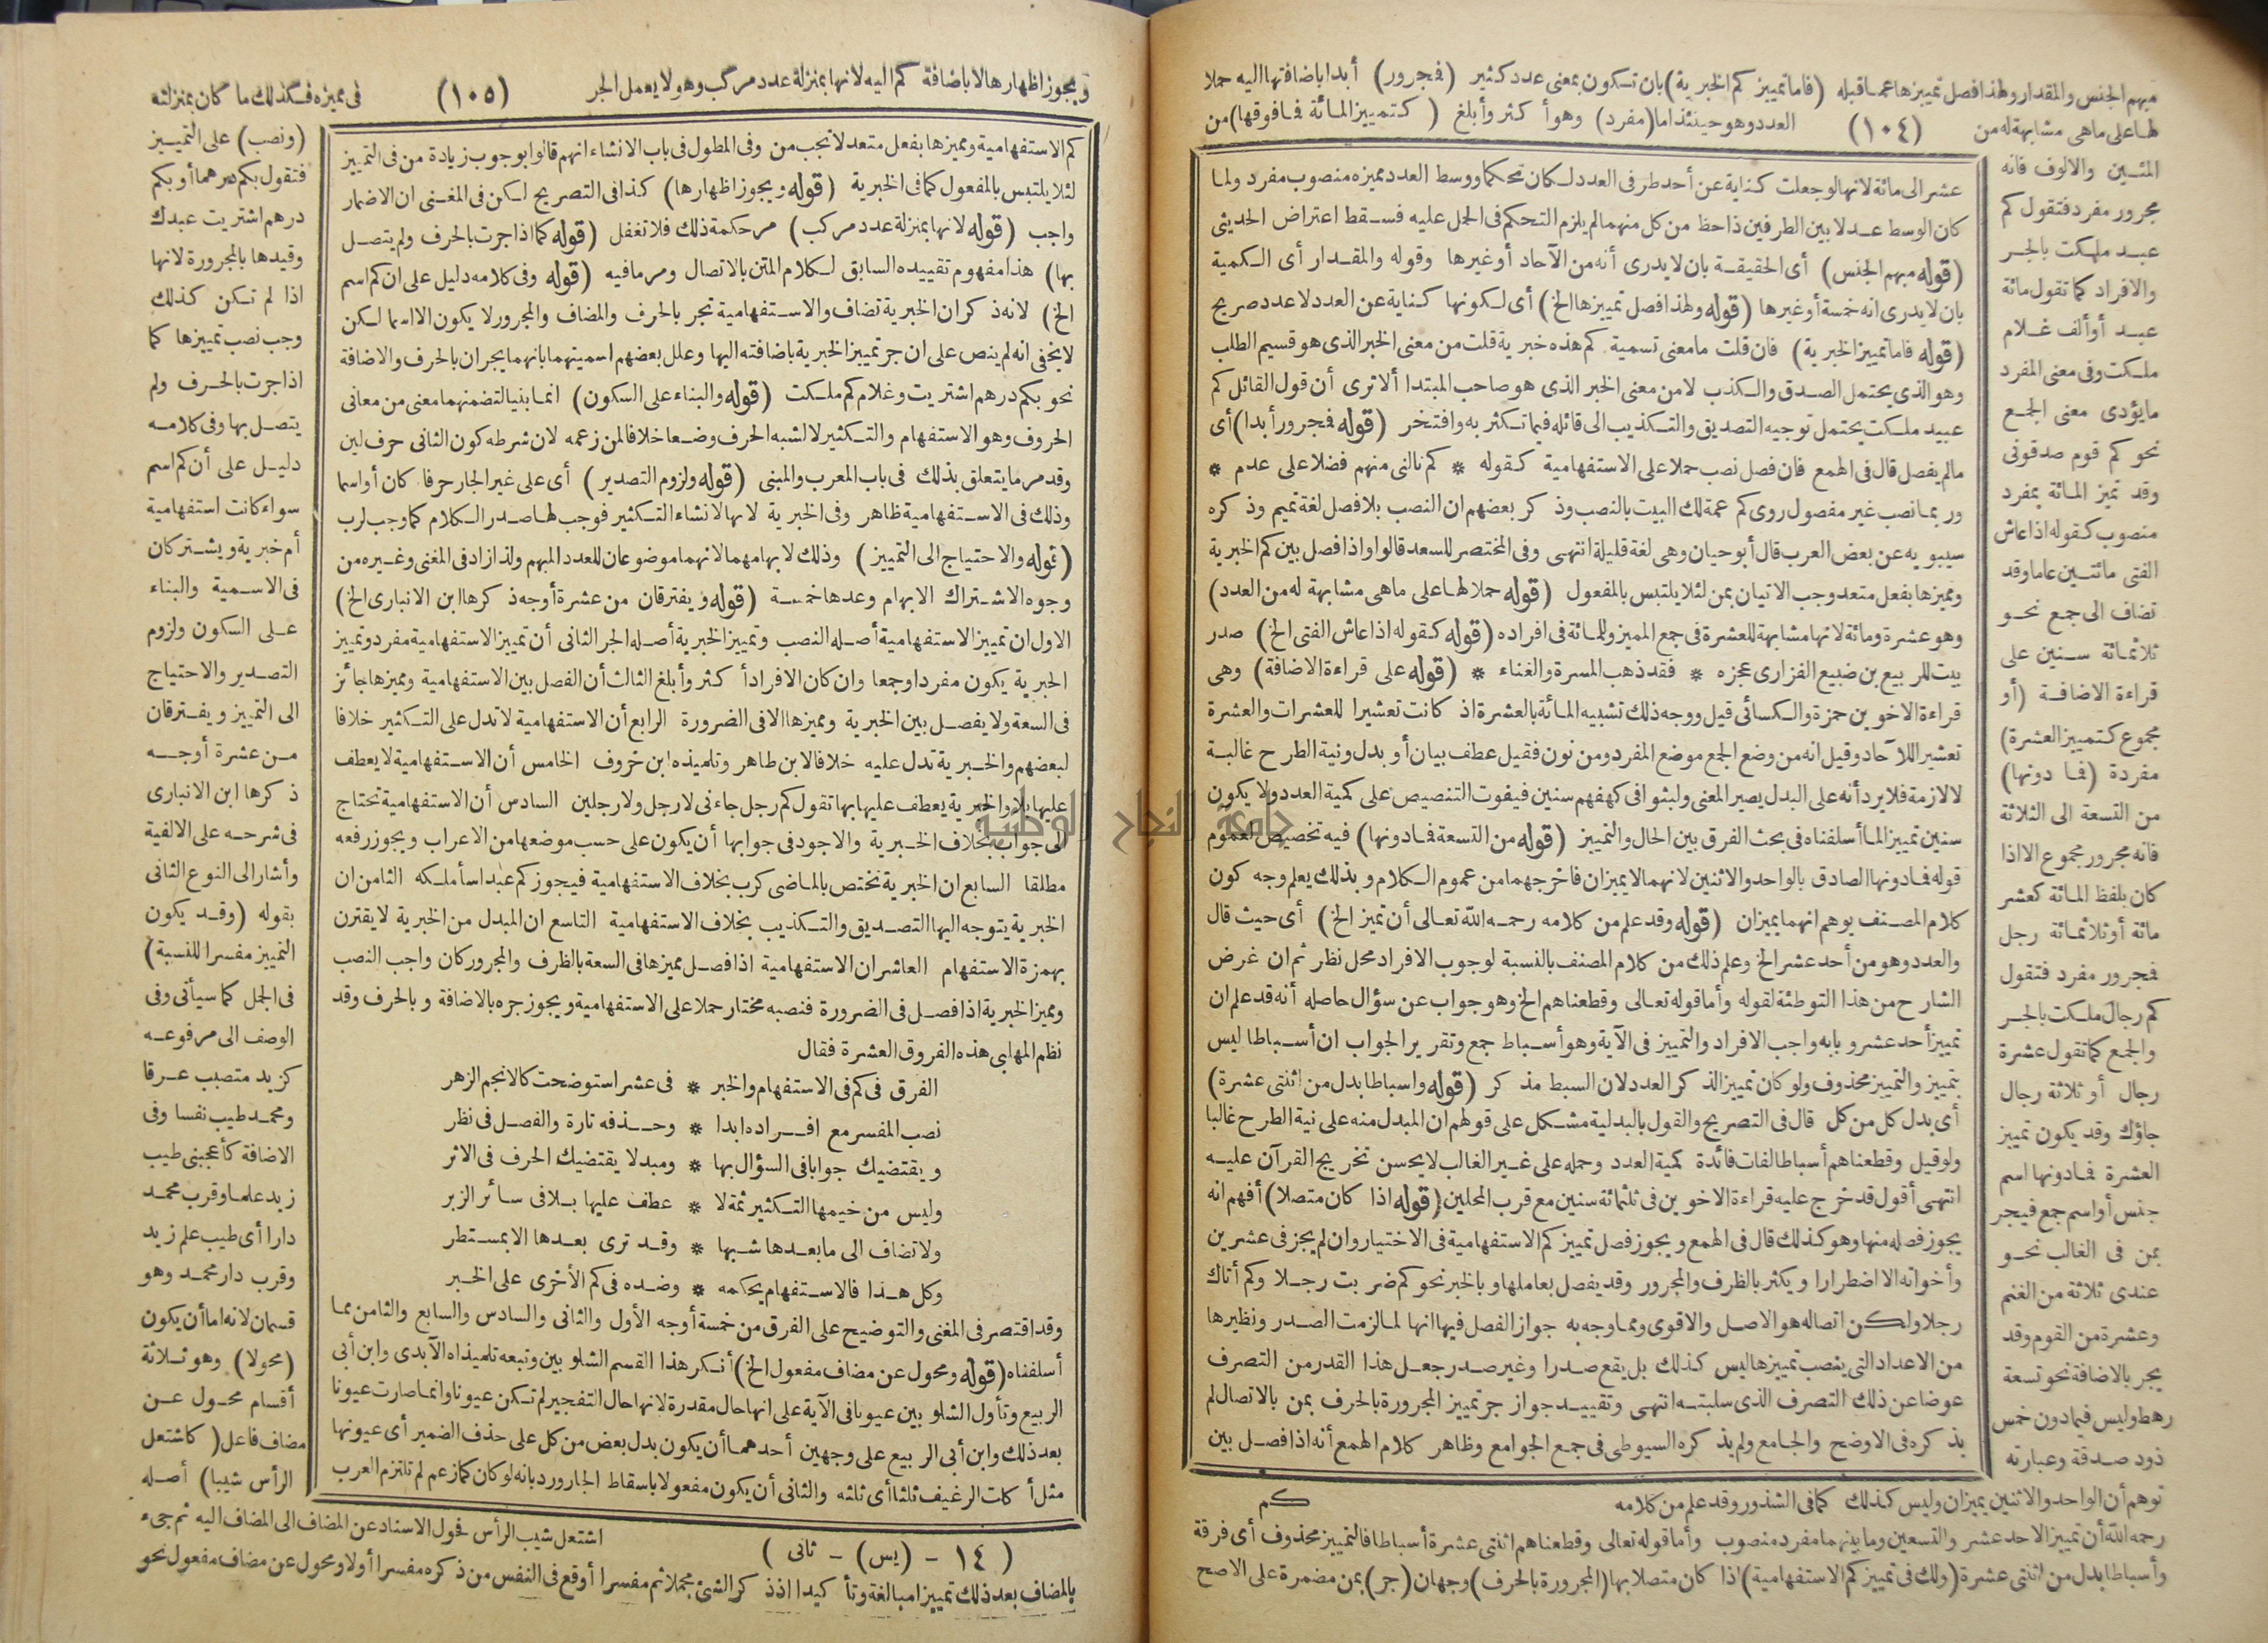 مبهم الجنس والمقدار ولهذا فصل تمييزها عما قبله (فاما تمييز كم الخبرية) بان تكون بمعنى عدد كثير (فجرور) أبدا باضافتها اليه حملا
لها على ما هى مشابهة له من (١٠٤) العدد وهو حينئذ اما (مفرد) وهو أكثر وأبلغ (كتمييز المائة فما فوقها) من
المئين والالوف فانه
مجرور مفرد فتقول كم
عبد ملكت بالجر
والافراد كما تقول مائة
عبد أو ألف غلام
ملكت وفى معنى المفرد
ما يؤدى معنى الجمع
نحو كم قوم صدقونى
وقد تميز المائة بمفرد
منصوب كقوله اذا عاش
الفتى مائتين عاما وقد
تضاف الى جمع نحو
ثلثمائة سنين على
قراءة الاضافة (أو
مجموع كتمييز العشرة)
مفردة (فما دونها)
من التسعة الى الثلاثة
فانه مجرور مجموع الا اذا
كان بلفظ المائة كعشر
مائة أو ثلاثمائة رجل
فجرور مفرد فتقول
كم رجال ملكت بالجر
والجمع كما تقول عشرة
رجال أو ثلاثة رجال
جاؤك وقد يكون تمييز
العشرة فما دونها اسم
جنس أو اسم جمع فيجر
بمن فى الغالب نحو
عندى ثلاثة من الغنم
وعشرة من القوم وقد
يجر بالاضافة نحو تسعة
رهط وليس فيما دون خمس
ذود صدقة وعبارته
عشر الى مائة لانها لو جعلت كناية عن أحد طرفى العدد لكان تحكما ووسط العدد مميزه منصوب مفرد ولما
كان الوسط عدلا بين الطرفين ذا حظ من كل منهما لم يلزم التحكم فى الحمل عليه فسقط اعتراض الحديثى
(قوله مبهم الجنس) أى الحقيقة بان لا يدرى أنه من الآحاد أو غيرها وقوله والمقدار أى الكمية
بان لا يدرى انه خمسة أو غيرها (قوله ولهذا فصل تمييزها الخ) أى لكونها كناية عن العدد لا عدد صريح
(قوله فاما تمييز الخبرية) فان قلت ما معنى تسمية كم هذه خبرية قلت من معنى الخبر الذى هو قسيم الطلب
وهو الذى يحتمل الصدق والكذب لا من معنى الخبر الذى هو صاحب المبتدا ألا ترى أن قول القائل كم
عبيد ملكت يحتمل توجيه التصديق والتكذيب الى قائله فيما تكثر به وافتخر (قوله فجرور أبدا) أى
مالم يفصل قال فى الهمع فان فصل نصب حملا على الاستفهامية كقوله * كم نالنى منهم فضلا على عدم *
وربما نصب غير مفصول روى كم عمة لك البيت بالنصب وذكر بعضهم ان النصب بلا فصل لغة تميم وذكره
سيبويه عن بعض العرب قال أبو حيان وهى لغة قليلة انتهى وفى المختصر للسعد قالوا واذا فصل بين كم الخبرية
ومميزها بفعل متعد وجب الاتيان بمن لئلا يلتبس بالمفعول (قوله حملا لها على ما هى مشابهة له من العدد)
وهو عشرة ومائة لانها مشابهة للعشرة فى جمع المميز وللمائة فى افراده (قوله كقوله اذا عاش الفتى الخ) صدر
بيت للربيع بن ضبيع الفزارى عجزه * فقد ذهب المسرة والغناء * (قوله على قراءة الاضافة) وهى
قراءة الاخوين حمزة والكسائى قيل ووجه ذلك تشبيه المائة بالعشرة اذ كانت تعشيرا للعشرات والعشرة
تعشير اللآحاد وقيل انه من وضع الجمع موضع المفرد ومن نون فقيل عطف بيان أو بدل ونية الطرح غالبة
لا لازمة فلا يرد أنه على البدل يصير المعنى ولبثوا فى كهفهم سنين فيفوت التنصيص على كمية العدد ولا يكون
سنين تمييز الما أسلفناه فى بحث الفرق بين الحال والتمييز (قوله من التسعة فما دونها) فيه تخصيص لعموم
قوله فما دونها الصادق بالواحد والاثنين لانهما لا يميزان فاخرجهما من عموم الكلام وبذلك يعلم وجه كون
كلام المصنف يوهم انهما يميزان (قوله وقد علم من كلامه رحمه الله تعالى أن تميز الخ) أى حيث قال
والعدد وهو من أحد عشر الخ وعلم ذلك من كلام المصنف بالنسبة لوجوب الافراد محل نظر ثم ان غرض
الشارح من هذا التوطئة لقوله وأما قوله تعالى وقطعناهم الخ وهو جواب عن سؤال حاصله أنه قد علم ان
تمييز أحد عشر وبابه واجب الافراد والتمييز فى الآية وهو أسباط جمع وتقرير الجواب ان أسباطا ليس
بتمييز والتمييز محذوف ولو كان تمييز الذكر العدد لان السبط مذكر (قوله واسباطا بدل من اثنتى عشرة)
أى بدل كل من كل قال فى التصريح والقول بالبدلية مشكل على قولهم ان المبدل منه على نية الطرح غالبا
ولو قيل وقطعناهم أسباطا لفات فائدة كمية العدد وحمله على غير الغالب لا يحسن تخريج القرآن عليه
انتهى أقول قد خرج عليه قراءة الاخوين فى ثلثمائة سنين مع قرب المحلين (قوله اذا كان متصلا) أفهم انه
يجوز فصله منها وهو كذلك قال فى الهمع ويجوز فصل تمييز كم الاستفهامية فى الاختيار وان لم يجز فى عشرين
وأخواته الا اضطرارا ويكثر بالظرف والمجرور وقد يفصل بعاملها وبالخبر نحو كم ضربت رجلا وكم أتاك
رجلا ولكن اتصاله هو الاصل والاقوى ومما وجه به جواز الفصل فيها انها لما لزمت الصدر ونظيرها
من الاعداد التى ينصب تمييزها ليس كذلك بل يقع صدرا وغير صدر جعل هذا القدر من التصرف
عوضا عن ذلك التصرف الذى سلبته انتهى وتقييد جواز جر تمييز المجرورة بالحرف بمن بالاتصال لم
يذكره فى الاوضح والجامع ولم يذكره السيوطى فى جمع الجوامع وظاهر كلام الهمع أنه اذا فصل بين
توهم أن الواحد والاثنين يميزان وليس كذلك كما فى الشذور وقد علم من كلامه كم
رحمه الله أن تمييز الاحد عشر والتسعين وما بينهما مفرد منصوب وأما قوله تعالى وقطعناهم اثنتى عشرة أسباطا فالتمييز محذوف أى فرقة
وأسباطا بدل من اثنتى عشرة (ولك فى تمييز كم الاستفهامية) اذا كان متصلا بها (المجرورة بالحرف) وجهان (جر) بمن مضمرة على الاصح
ويجوز اظهارها لا باضافة كم اليه لانها بمنزلة عدد مركب وهو لا يعمل الجر (١٠٥) فى مميزه فكذلك ما كان بمنزلته
كم الاستفهامية ومميزها بفعل متعد لا تجب من وفى المطول فى باب الانشاء انهم قالوا بوجوب زيادة من فى التمييز
لئلا يلتبس بالمفعول كما فى الخبرية (قوله ويجوز اظهارها) كذا فى التصريح لكن فى المغنى ان الاضمار
واجب (قوله لانها بمنزلة عدد مركب) مر حكمة ذلك فلا تغفل (قوله كما اذا جرت بالحرف ولم يتصل
بها) هذا مفهوم تقييده السابق لكلام المتن بالاتصال ومر ما فيه (قوله وفى كلامه دليل على ان كم اسم
الخ) لانه ذكر ان الخبرية تضاف والاستفهامية تجر بالحرف والمضاف والمجرور لا يكون الا اسما لكن
لا يخفى انه لم ينص على ان جر تمييز الخبرية باضافته اليها وعلل بعضهم اسميتهما بانهما يجران بالحرف والاضافة
نحو بكم درهم اشتريت وغلام كم ملكت (قوله والبناء على السكون) انما بنيا لتضمنهما معنى من معانى
الحروف وهو الاستفهام والتكثير لا لشبه الحرف وضعا خلافا لمن زعمه لان شرطه كون الثانى حرف لين
وقد مر ما يتعلق بذلك فى باب المعرب والمبنى (قوله ولزوم التصدير) أى على غير الجار حرفا كان أو اسما
وذلك فى الاستفهامية ظاهر وفى الخبرية لانها لانشاء التكثير فوجب لها صدر الكلام كما وجب لرب
(قوله والاحتياج الى التمييز) وذلك لابهامهما لانهما موضوعان للعدد المبهم ولذا زاد فى المغنى وغيره من
وجوه الاشتراك الابهام وعدها خمسة (قوله ويفترقان من عشرة أوجه ذكرها ابن الانبارى الخ)
الاول ان تمييز الاستفهامية أصله النصب وتمييز الخبرية أصله الجر الثانى أن تمييز الاستفهامية مفرد وتمييز
الخبرية يكون مفردا وجمعا وان كان الافراد أكثر وأبلغ الثالث أن الفصل بين الاستفهامية ومميزها جائز
فى السعة ولا يفصل بين الخبرية ومميزها الا فى الضرورة الرابع أن الاستفهامية لا تدل على التكثير خلافا
لبعضهم والخبرية تدل عليه خلافا لابن طاهر وتلميذه ابن خروف الخامس أن الاستفهامية لا يعطف
عليها بلا والخبرية يعطف عليها بها تقول كم رجل جاءنى لا رجل ولا رجلين السادس أن الاستفهامية تحتاج
الى جواب بخلاف الخبرية والاجود فى جوابها أن يكون على حسب موضعها من الاعراب ويجوز رفعه
مطلقا السابع ان الخبرية تختص بالماضى كرب بخلاف الاستفهامية فيجوز كم عبدا سأملكه الثامن ان
الخبرية يتوجه اليها التصديق والتكذيب بخلاف الاستفهامية التاسع ان المبدل من الخبرية لا يقترن
بهمزة الاستفهام العاشر ان الاستفهامية اذا فصل مميزها فى السعة بالظرف والمجرور كان واجب النصب
ومميز الخبرية اذا فصل فى الضرورة فنصبه مختار حملا على الاستفهامية ويجوز جره بالاضافة وبالحرف وقد
نظم المهلبى هذه الفروق العشرة فقال
الفرق فى كم فى الاستفهام والخبر * فى عشر استوضحت كالانجم الزهر
نصب المفسر مع افراده ابدا * وحذفه تارة والفصل فى نظر
ويقتضيك جوابا فى السؤال بها * ومبدلا يقتضيك الحرف فى الاثر
وليس من خيمها التكثير ثمة لا * عطف عليها بلا فى سائر الزبر
ولا تضاف الى ما بعدها شبها * وقد ترى بعدها الا بمستطر
وكل هذا فالاستفهام يحكمه * وضده فى كم الأخرى على الخبر
وقد اقتصر فى المغنى والتوضيح على الفرق من خمسة أوجه الأول والثانى والسادس والسابع والثامن مما
أسلفناه (قوله ومحول عن مضاف مفعول الخ) أنكر هذا القسم الشلوبين وتبعه تلميذاه الآبدى وابن أبى
الربيع وتأول الشلوبين عيونا فى الآية على انها حال مقدرة لانها حال التفجير لم تكن عيونا وانما صارت عيونا
بعد ذلك وابن أبى الربيع على وجهين أحدهما أن يكون بدل بعض من كل على حذف الضمير أى عيونها
مثل أكلت الرغيف ثلثا أى ثلثه والثانى أن يكون مفعولا باسقاط الجار ورد بانه لو كان كما زعم لم تلتزم العرب
(ونصب) على التمييز
فتقول بكم درهما أو بكم
درهم اشتريت عبدك
وقيدها بالمجرورة لانها
اذا لم تكن كذلك
وجب نصب تمييزها كما
اذا جرت بالحرف ولم
يتصل بها وفى كلامه
دليل على أن كم اسم
سواء كانت استفهامية
أم خبرية ويشتركان
فى الاسمية والبناء
على السكون ولزوم
التصدير والاحتياج
الى التمييز ويفترقان
من عشرة أوجه
ذكرها ابن الانبارى
فى شرحه على الالفية
وأشار الى النوع الثانى
بقوله (وقد يكون
التمييز مفسرا للنسبة)
فى الجمل كما سيأتى وفى
الوصف الى مرفوعه
كزيد متصبب عرقا
ومحمد طيب نفسا وفى
الاضافة كأعجبنى طيب
زيد علما وقرب محمد
دارا أى طيب علم زيد
وقرب دار محمد وهو
قسمان لانه اما أن يكون
(محولا) وهو ثلاثة
أقسام محول عن
مضاف فاعل (كاشتعل
الرأس شيبا) أصله
اشتعل شيب الرأس فحول الاسناد عن المضاف الى المضاف اليه ثم جىء
(١٤ - (يس) - ثانى)
بالمضاف بعد ذلك تمييزا مبالغة وتأكيدا اذ ذكر الشئ مجملا ثم مفسرا أوقع فى النفس من ذكره مفسرا أولا ومحول عن مضاف مفعول نحو
جامعة النجاح الوطنية